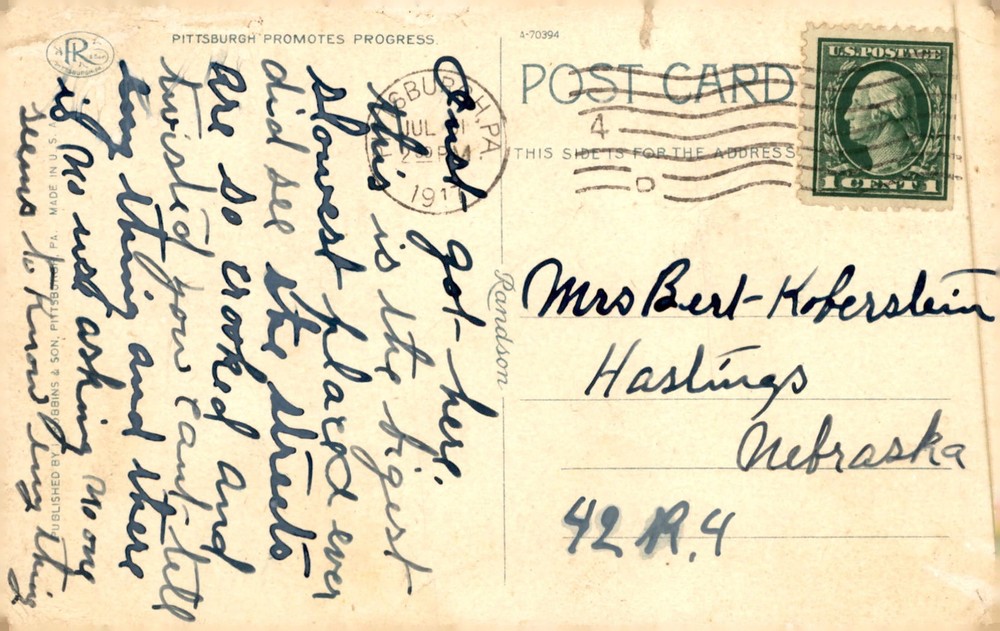 PITTSBURGH PROMOTES PROGRESS.
A-70394
POST CARD
THIS SIDE IS FOR THE ADDRESS
U.S. POSTAGE
1 CENT 1
SBURGH, PA.
JUL
2 30 PM
1917
4
D
R
PITTSBURGH
Just got here.
this is the bigest
slowest placed ever
did see the streets
are so crooked and
twisted you cant tell
any thing and there
is no use asking no one
seems to know any thing
PUBLISHED BY I. ROBBINS & SON, PITTSBURGH, PA. MADE IN U.S.A.
Randson
Mrs Bert Koberstein
Hastings
Nebraska
42 R.4